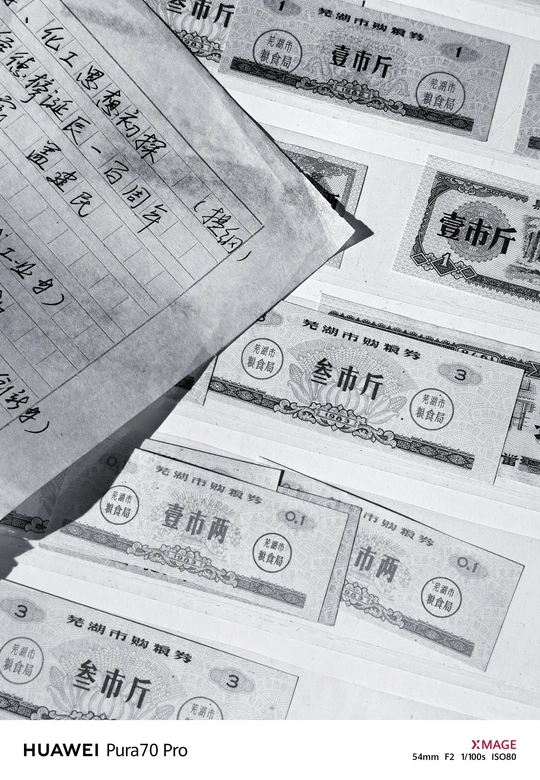 叁市斤
1
芜湖市购粮券
1
芜湖市
粮食局
壹市斤
芜湖市
粮食局
化工思想初探
诞辰一百周年
孟建民
(提纲)
工业
壹市斤
1
芜湖市购粮券
3
芜湖市
粮食局
叁市斤
芜湖市
粮食局
芜湖市购粮券
0.1
芜湖市
粮食局
壹市两
芜湖市
粮食局
购粮券
0.1
市两
芜湖市
粮食局
3
芜湖市购粮券
3
芜湖市
粮食局
叁市斤
芜湖市
粮食局
HUAWEI Pura70 Pro
XMAGE
54mm F2 1/100s ISO80